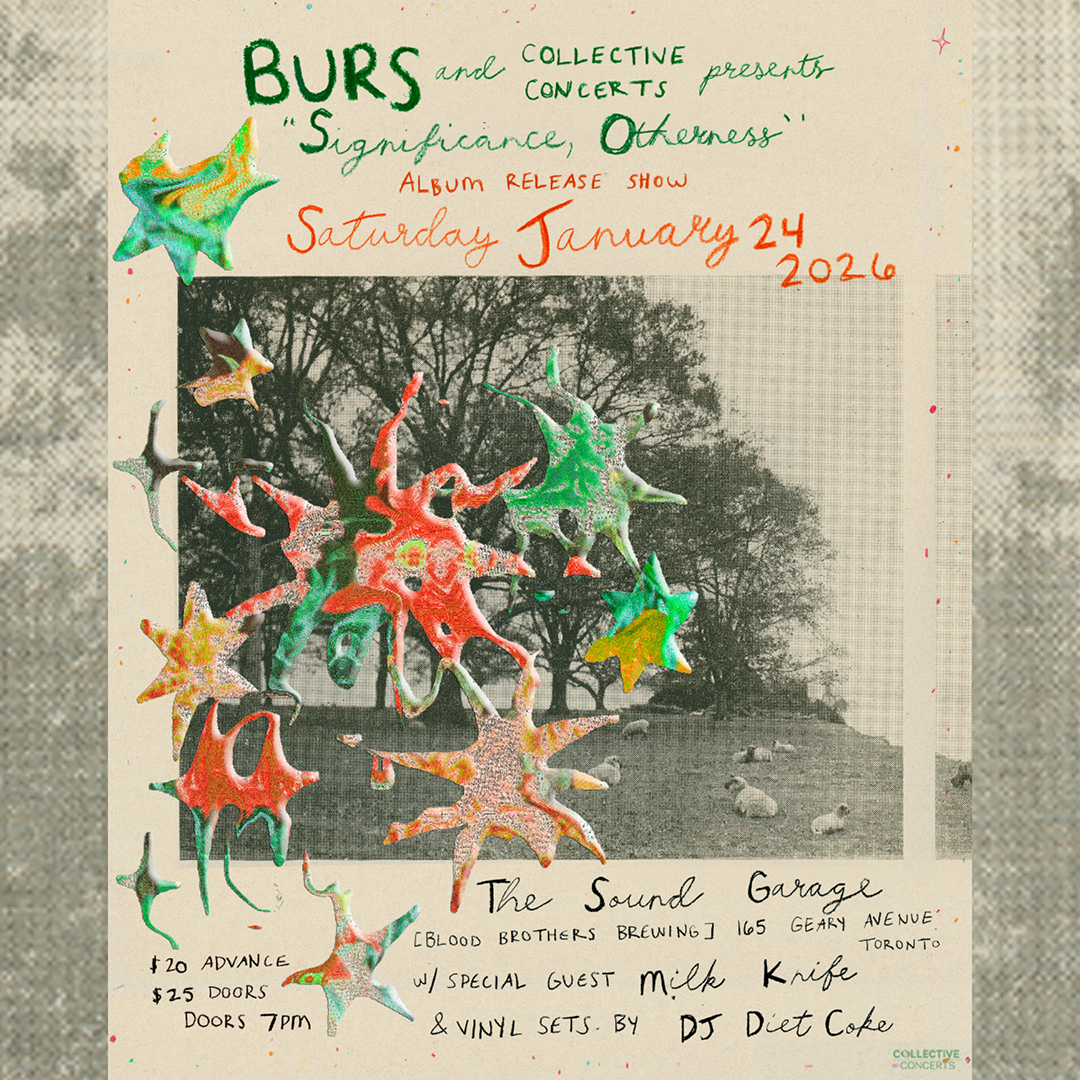 BURS and COLLECTIVE CONCERTS presents
"Significance, Otherness"
ALBUM RELEASE SHOW
Saturday January 24
2026
The Sound Garage
[BLOOD BROTHERS BREWING] 165 GEARY AVENUE
TORONTO
$20 ADVANCE
$25 DOORS
DOORS 7PM
w/ SPECIAL GUEST Milk Knife
& VINYL SETS. BY DJ Diet Coke
COLLECTIVE
CONCERTS